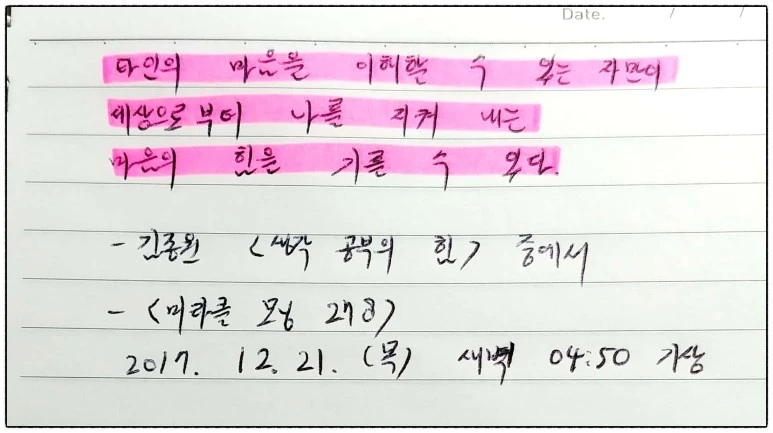 Date. / /
타인의 마음을 이해할 수 있는 자만이
세상으로부터 나를 지켜 내는
마음의 힘을 기를 수 있다.
- 김종원 <생각 공부의 힘> 중에서
- <미라클 모닝 278>
2017. 12. 21. (목) 새벽 04:50 기상